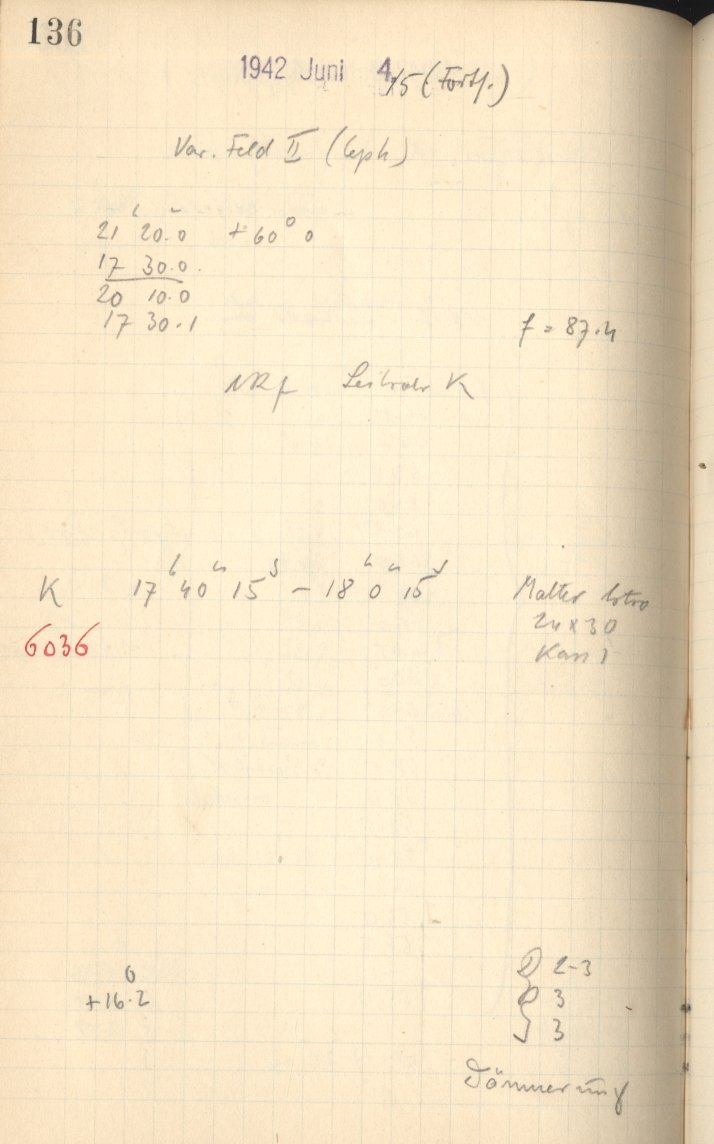 136
1942 Juni 4/5 (Forts.)
Var. Feld II (Ceph)
21 h 20.0 m +60° 0
17 30.0
20 10.0
17 30.1
f = 87.4
Leitrohr K
K 17 h 40 m 15 s – 18 h 0 m 15 s
6036
24 x 30
Kass 1
0
+16.2
D 2-3
3
3
Dämmerung